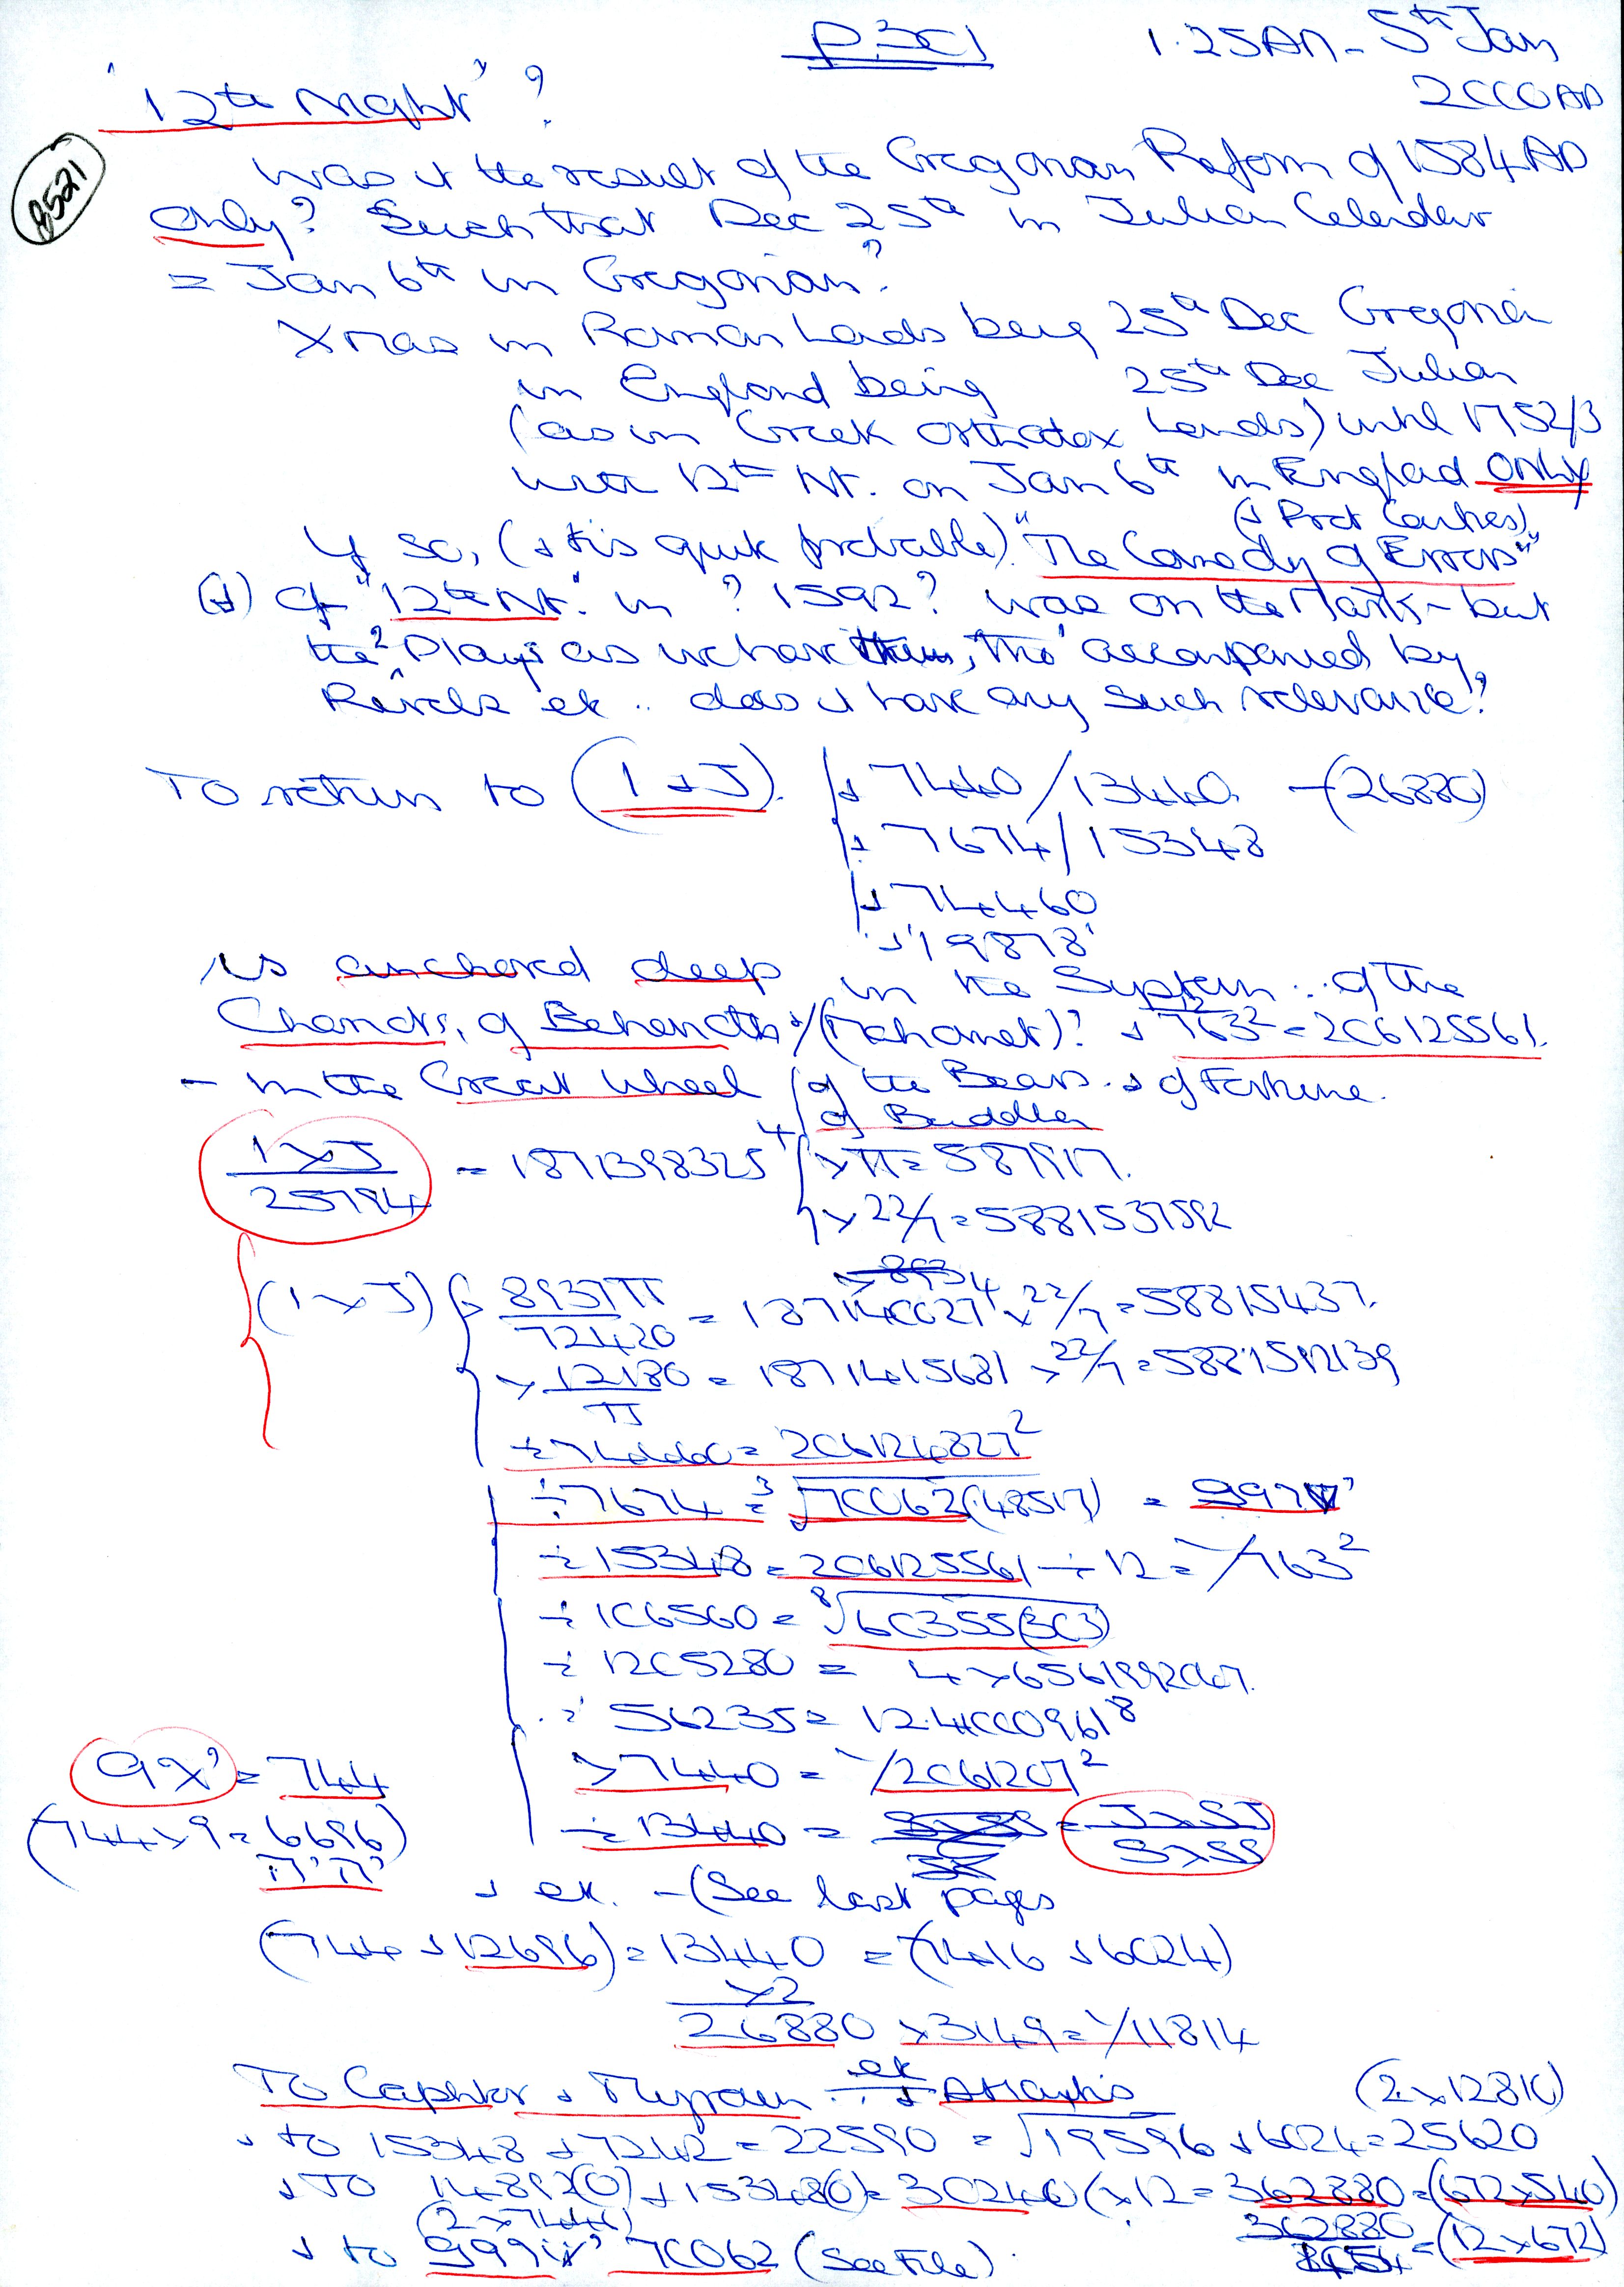 P3C1 1.25AM - 5th Jan
2000AD
"12th Night"?
8521
Was it the result of the Gregorian Reform of 1584AD
Only? Such that Dec 25th in Julian Calendar
= Jan 6th in Gregorian?
Xmas in Roman Lands being 25th Dec Gregorian
in England being 25th Dec Julian
(as in Greek Orthodox Lands) until 1752/3
with 12th Nt. on Jan 6th in England ONLY
If so, (& tis quite probable) "The Comedy of Errors"
of "12th Nt." in ? 1592? was on the Mark - but
the 2 Plays as we have them, tho' accompanied by
Revels etc .. does it have any such relevance?
To return to (1 + J). + 7440/13440. -(26880)
+ 7674/15348
+ 74460
+ '19878'
is anchored deep in the System .. of the
Chands, of Behemoth /(Mahomet)? + 763² = 206125561.
- in the Great Wheel of the Bears & of Fortune.
of Buddha
1xJ
25794 = 1871398325⁴ x π = 587917.
x 22/7 = 5881537592
(1 x J) 8937π
72420 = 187140027⁴ x 22/7 = 58815437.
x 12180 = 1871415681 x 22/7 = 5881592139
π
÷ 74460 = 206124827²
÷ 7674 = ³√70062(48517) = 999
÷ 15348 = 206125561 ÷ 12 = 763²
÷ 106560 = ⁸√60355(303)
÷ 1205280 = 4 x 6561992007.
÷ 56235 = 12.4000961⁸
9X' = 744 x 7440 = 2061207²
(744 x 9 = 6696) ÷ 13440 = JxSJ
SxSS
+ etc. - (See last pages
(744 + 12696) = 13440 = (7416 + 6024)
x2
26880 x 3149 = 11814
To Caphtor & + Atlantis (2 x 12810)
+ to 15348 + 7242 = 22590 = √19596 + 6024 = 25620
+ To 14892(0) + 15348(0) = 30240 (x 12 = 362880 = (672x540)
(2 x 7446) 362880 = (12 x 672)
+ to 999 70062 (See File).